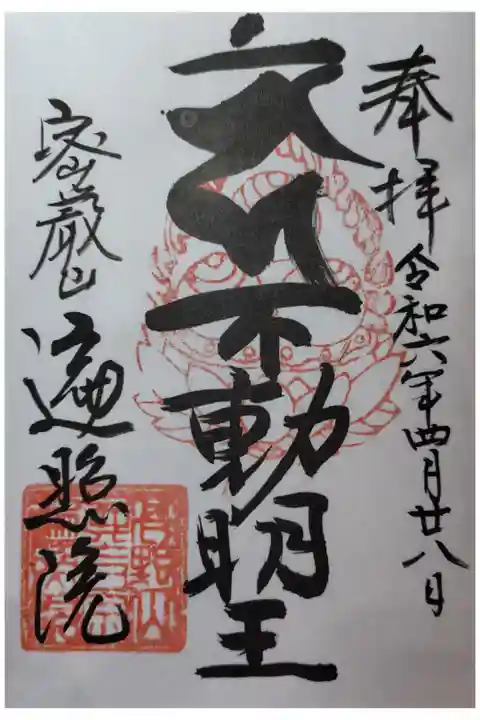 奉拝 令和六年四月廿八日
不動明王
密厳山 遍照院